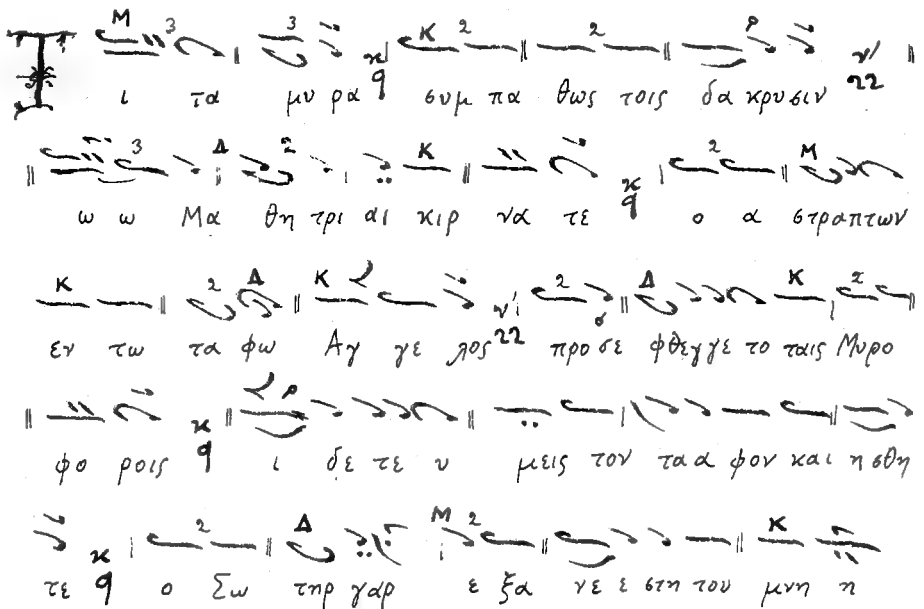 Τ ι τα μυ ρα συμ πα θως τοις δα κρυ σιν
ω ω Μα θη τρι αι κιρ να τε ο α στραπτων
εν τω τα φω Αγ γε λος προ σε φθεγγε το ταις Μυρο
φο ροις ι δε τε υ μεις τον ταα φον και η σθη
τε ο Σω τηρ γαρ ε ξα νε ε στη του μνη η